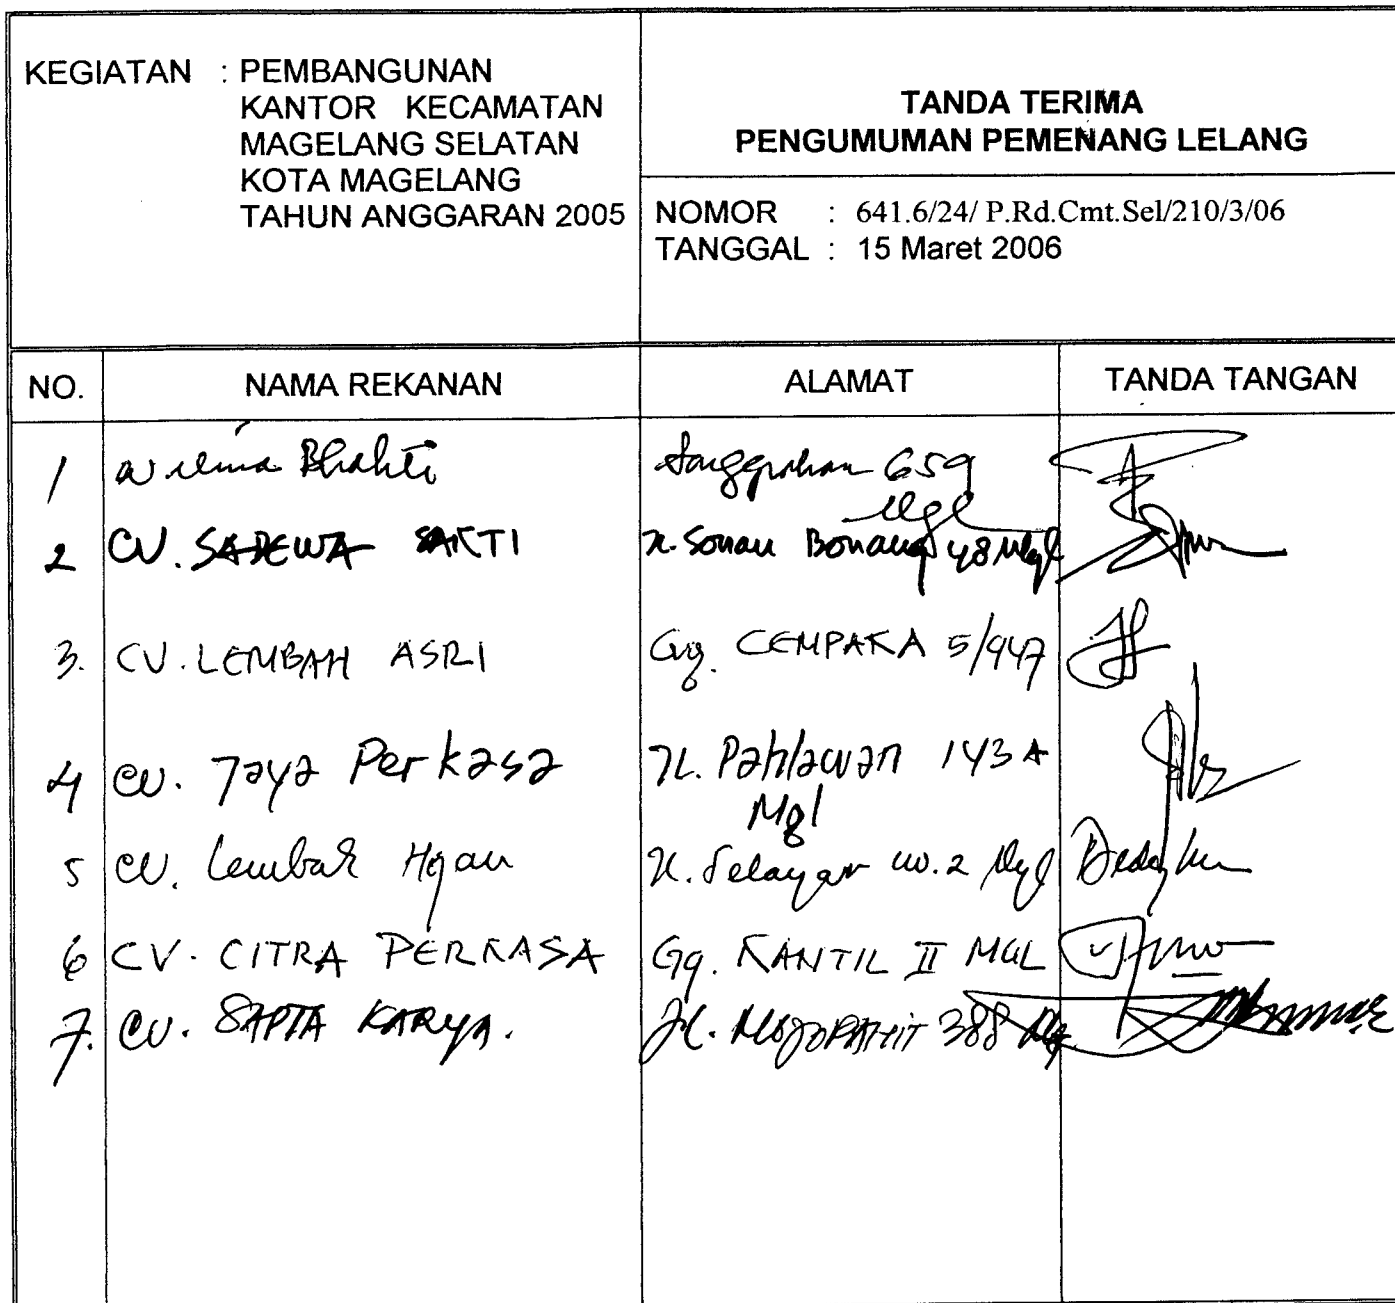 KEGIATAN : PEMBANGUNAN
KANTOR KECAMATAN
MAGELANG SELATAN
KOTA MAGELANG
TAHUN ANGGARAN 2005
TANDA TERIMA
PENGUMUMAN PEMENANG LELANG
NOMOR : 641.6/24/ P.Rd.Cmt.Sel/210/3/06
TANGGAL : 15 Maret 2006
NO. NAMA REKANAN ALAMAT TANDA TANGAN
1 Bhakti 659
Mgl
2 CV. SADEWA SAKTI Jl. Sonan Bonang 48 Mgl
3. CV. LEMBAH ASRI Gg. CEMPAKA 5/947
4 CV. Jaya Perkasa JL. Pahlawan 143 A
Mgl
5 CV. Lembah Hijau Jl. Selayar no. 2 Mgl
6 CV. CITRA PERKASA Gg. KANTIL II MGL
7. CV. SAPTA KARYA. Jl. MOJOPAHIT 388 Mg